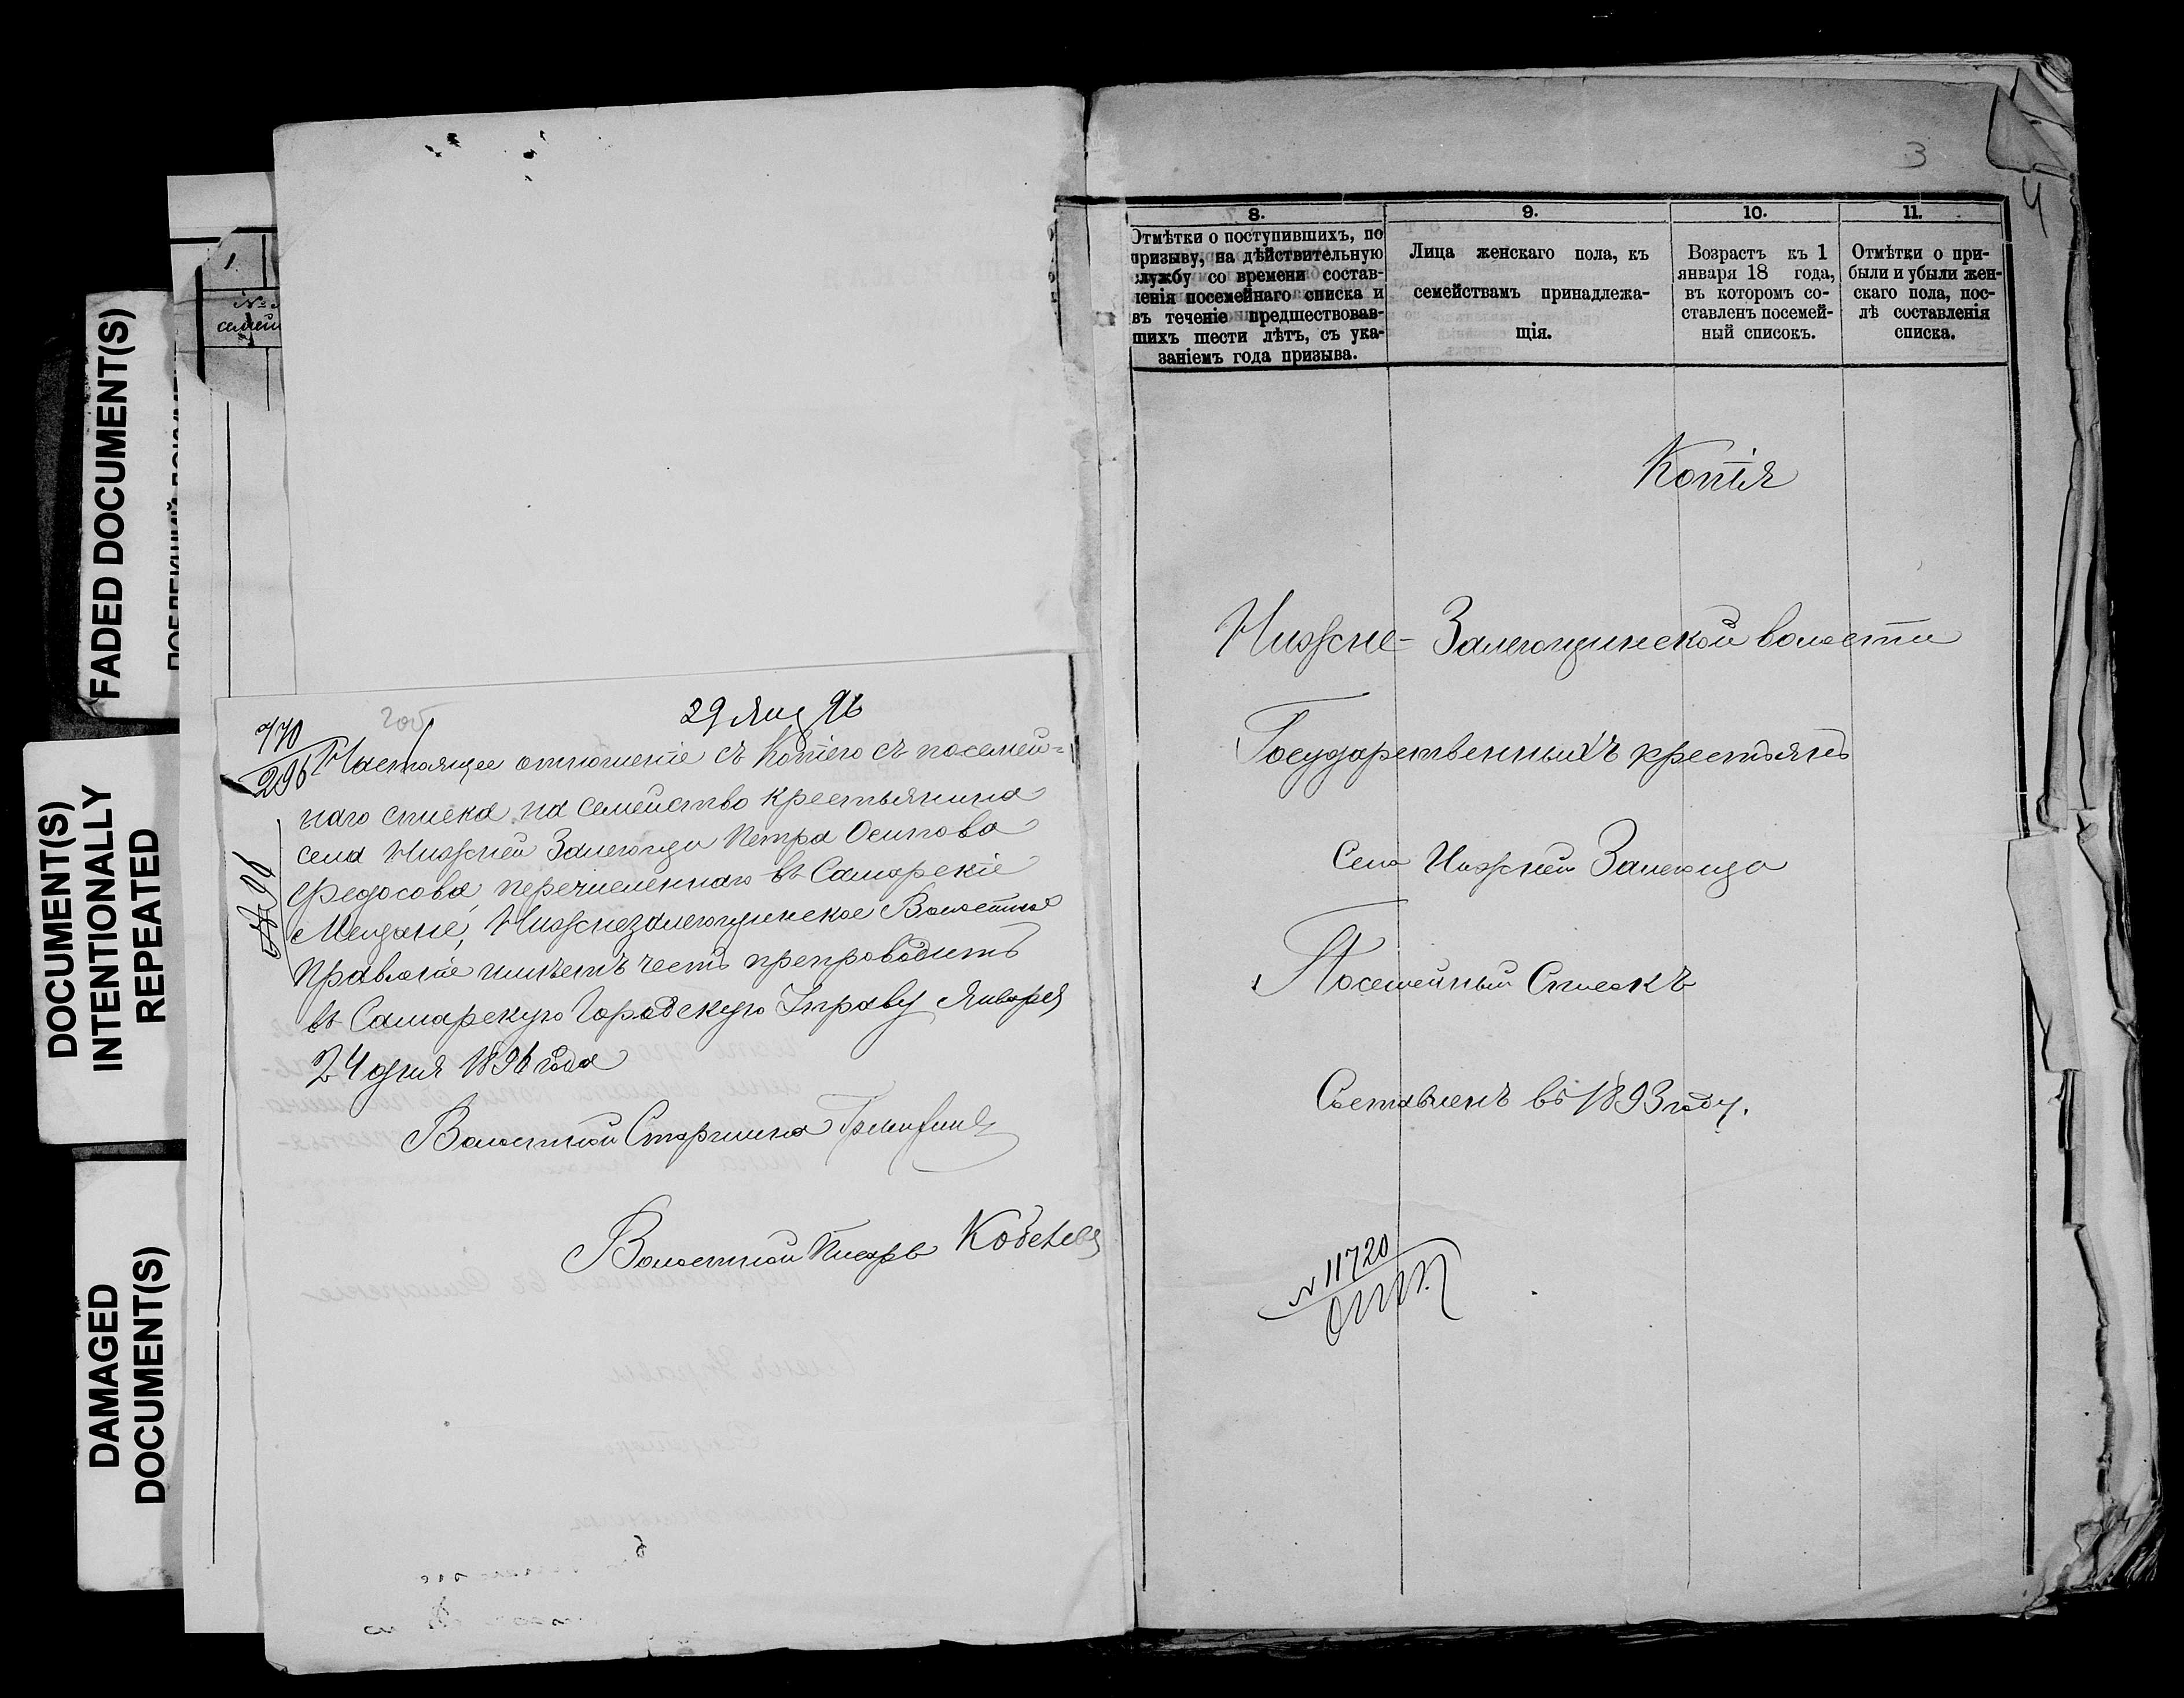 FADED DOCUMENT(S)
DOCUMENT(S)
INTENTIONALLY
REPEATED
DAMAGED
DOCUMENT(S)
1
29 Янв 96
770
296
Настоящее отношение съ Копіею съ посемей=
наго списка на семейство крестьянина
села Нижней Залегощи Петра Осипова
Федосова, перечисленнаго въ Самарскіе
Мещане, Нижнезалегощинское Волостное
Правленіе имѣетъ честь препроводить
въ Самарскую Городскую Управу Января
24 дня 1896 года
Волостной Старшина
Волостной Писарь
3
4
8.
9.
10.
11.
Отмѣтки о поступившихъ, по
призыву, на дѣйствительную
службу со времени состав-
ленія посемейнаго списка и
въ теченіе предшествовав-
шихъ шести лѣтъ, съ ука-
заніемъ года призыва.
Лица женскаго пола, къ
семействамъ принадлежа-
щія.
Возрастъ къ 1
января 18 года,
въ которомъ со-
ставленъ посемей-
ный списокъ.
Отмѣтки о при-
были и убыли жен-
скаго пола, пос-
лѣ составленія
списка.
Копія
Нижне-Залегощинской волости
Государственныхъ крестьянъ
Села Нижней Залегощи
Посемейный Списокъ
Составленъ въ 1893 году.
№ 11720